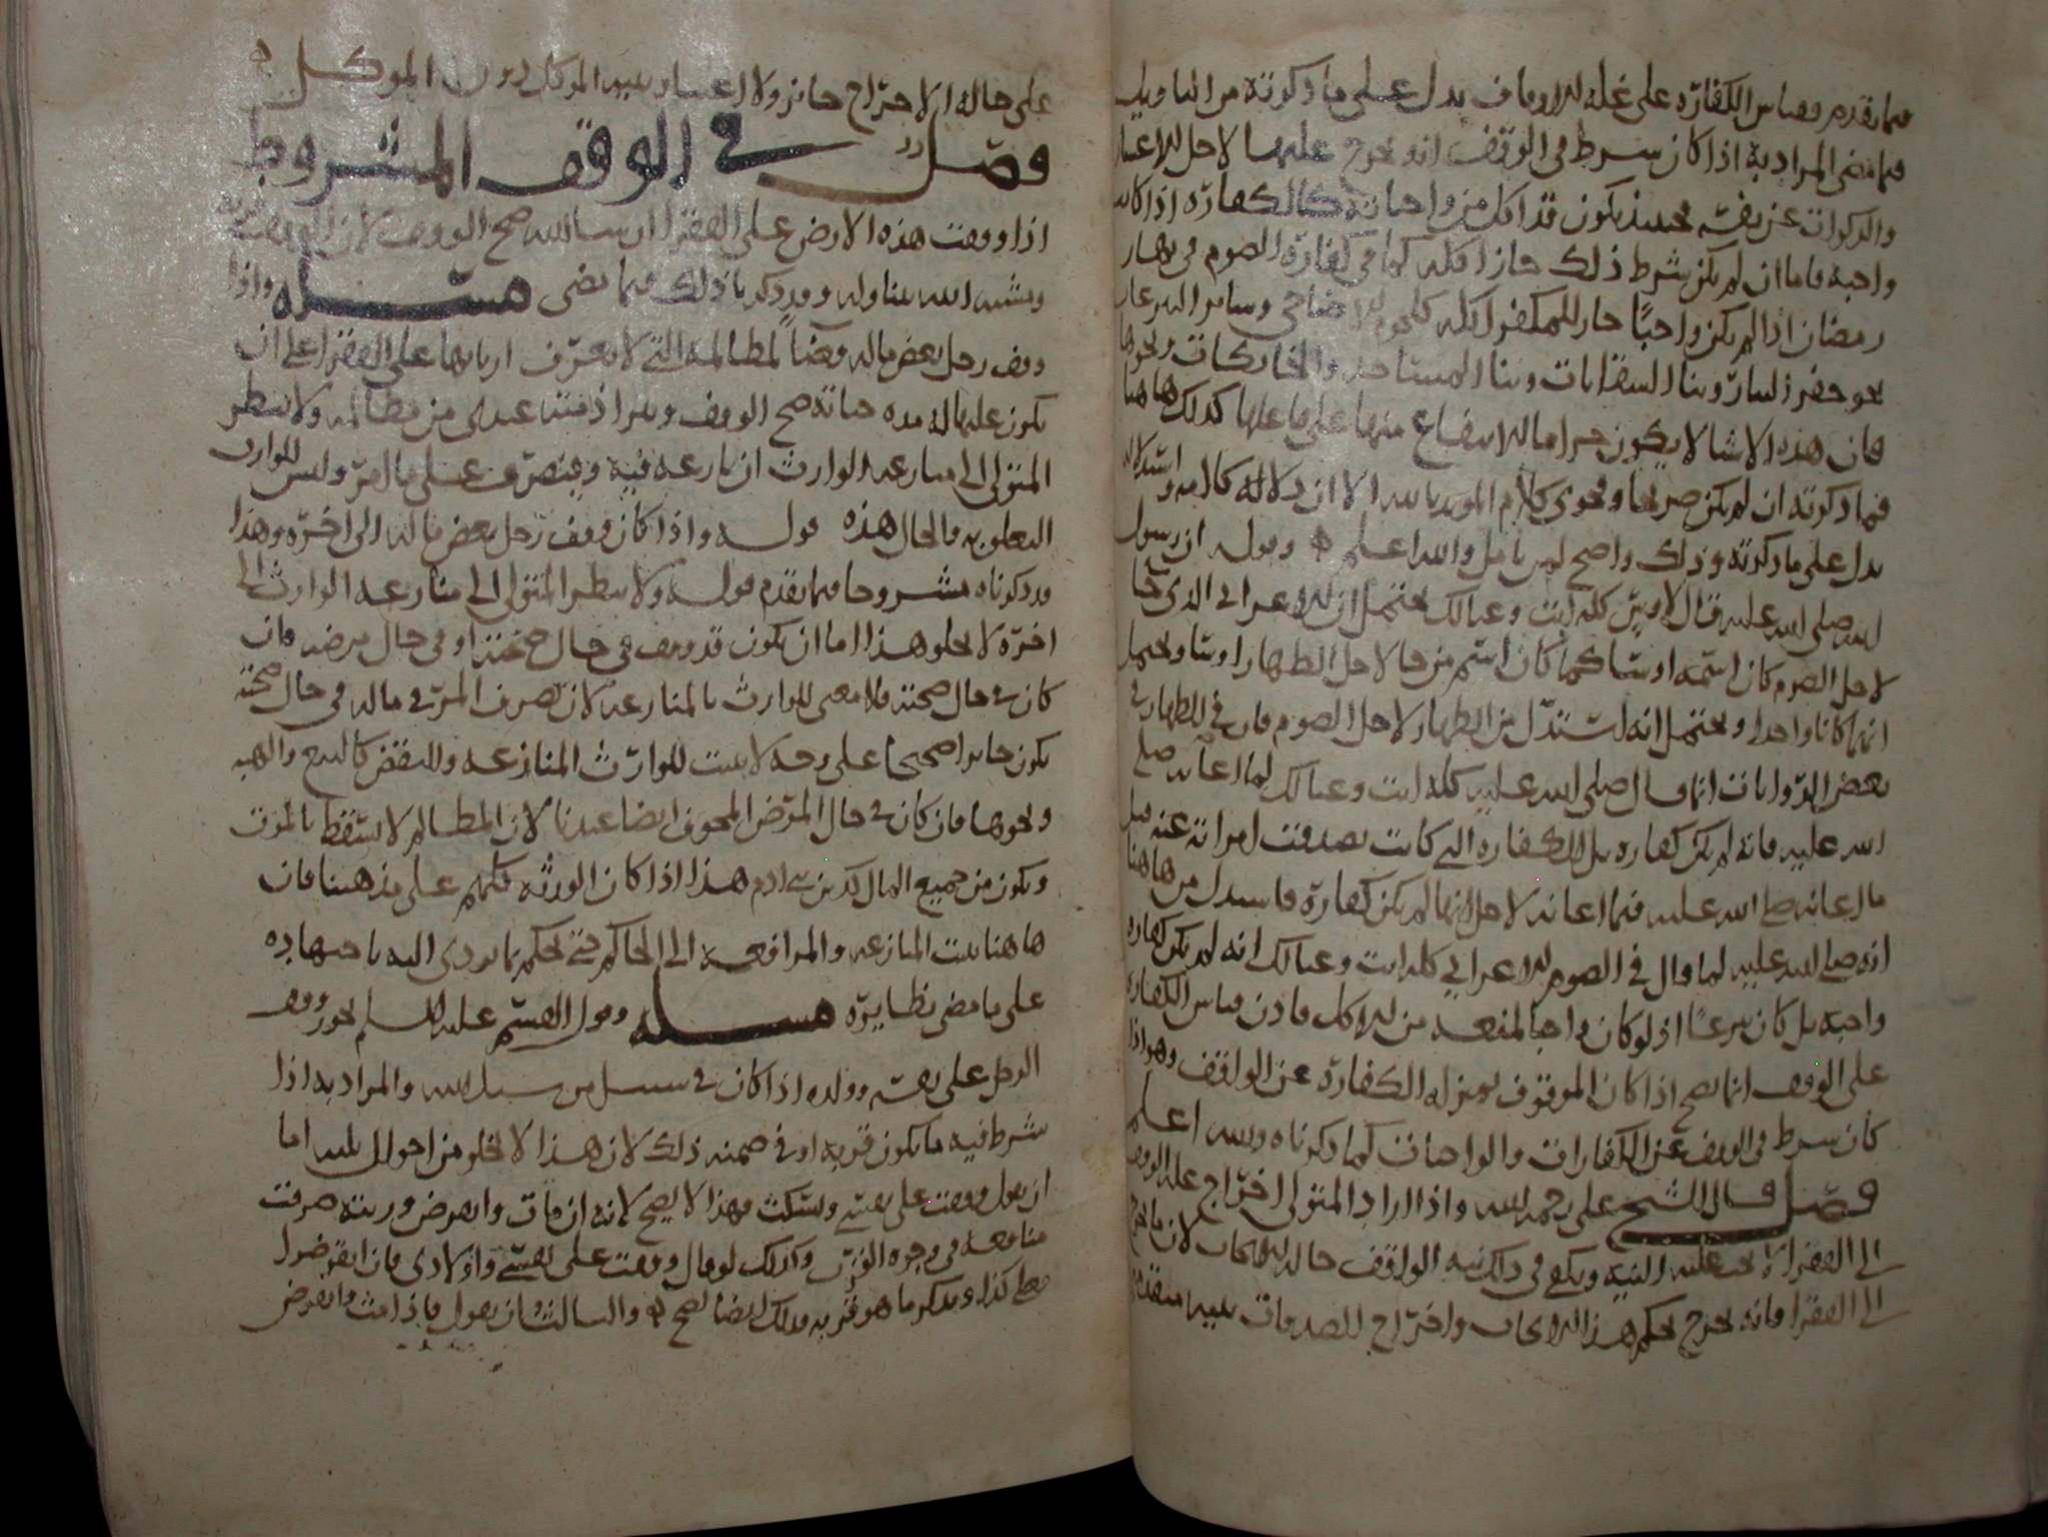 فيما تقدم وقياس الكفارة على غلة الاوقاف يدل على ما ذكرته من التاويل
فيما مضى المراد به اذا كان شرط في الوقف انه يخرج عليها لاجل الاعشار
والزكوات عن نفسه فحينئذ يكون قد اكل من واجباته كالكفارة اذا كانت
واجبة فاما ان لم يكن شرط ذلك جاز اكله كما في كفارة الصوم في نهار
رمضان اذا لم يكن واجبًا جاز للمكفر اكله كلحوم الاضاحي وسائر التبرعات
نحو حفر البئار وبنا السقايات وبنا المساجد والخانكات ونحوها
فان هذه الاشيا لا يكون حراما الانتفاع منها على فاعلها كذلك هاهنا
فيما ذكرته ان لم يكن صريحا وفحوى كلام المويد بالله الا ان دلالة كلامه واستدلاله
يدل على ما ذكرته وذلك واضح لمن تامل والله اعلم وقوله ان رسول
الله صلى الله عليه قال لاوس كله انت وعيالك يحتمل ان الاعرابي الذي جا
لاجل الصوم كان اسمه اوسا كما كان اسم من جا لاجل الظهار اوسا ويحتمل
انهما كانا واحدا ويحتمل انه استدل من الظهار لاجل الصوم فان في الظهار في
بعض الروايات انما قال صلى الله عليه كله انت وعيالك لما اعانه صلى
الله عليه فانه لم يكن كفارة بل الكفارة التي كانت تصدقت امراته عنه قبل
ما اعانه صلى الله عليه فيما اعانه لاجل انها لم يكن كفارة فاستدل من هاهنا
انه صلى الله عليه لما قال في الصوم للاعرابي كله انت وعيالك انه لم يكن كفارة
واجبة بل كان تبرعًا اذ لو كان واجبا لمنعه من الاكل فاذن قياس الكفارة
على الوقف انما يصح اذا كان الموقوف بمنزلة الكفارة عن الواقف وهو اذا
كان شرط في الوقف عن الكفارات والواجبات كما ذكرناه والله اعلم
فصل قال الشيخ علي رحمه الله واذا اراد المتولي اخراج غلة الوقف
الى الفقرا لا يجب عليه النية ويكفي في ذلك نية الواقف حالة الايجاب لان ما يخرج
الى الفقرا فانه يخرج بحكم هذا الايجاب واخراج الصدقات بنية متقدمة
على حالة الاخراج جائز ولا اعتبار بنية الموكل دون الموكل
فصل في الوقف المشروط
اذا وقفت هذه الارض على الفقرا ان شا الله صح الوقف لان الوقف قربة
ومشية الله يتناوله وقد ذكرنا ذلك فيما مضى مسئلة واذا
وقف رجل بعض ماله وقفًا لمظالمه التي لا يعرف اربابها على الفقرا على ان
يكون عليها له مدة حياته صح الوقف وبرا ذمته عندي من مظالمه ولا ينظر
المتولي الى منازعة الوارث ان نازعه فيه ويتصرف على ما امر وليس للوارث
التعلق به والحال هذه قوله واذا كان وقف رجل بعض ماله الى اخره وهذا
قد ذكرناه مشروحا فيما تقدم قوله ولا ينظر المتولي الى منازعة الوارث الى
اخره لا يخلو هذا اما ان يكون قد وقف في حال صحته او في حال مرضه فان
كان في حال صحته فلا معنى للوارث بالمنازعة لان تصرف المرء في ماله في حال صحته
يكون جائزا صحيحا على وجه لا يثبت للوارث المنازعة والنقض كالبيع والهبة
ونحوها فان كان في حال المرض المخوف ايضا عندنا لان المظالم لا تسقط بالموت
ويكون من جميع المال كدين بني ادم هذا اذا كان الورثة كلهم على مذهبنا فان
هاهنا يثبت المنازعة والمرافعة الى الحاكم حتى يحكم بما يودي اليه باجتهاده
على ما مضى نظايره مسئلة وقول القسم عليه السلم يجوز وقف
الرجل على نفسه وولده اذا كان في سبيل من سبل الله والمراد به اذا
شرط فيه ما يكون قربة او في ضمنه ذلك لان هذا لا يخلو من احوال ثلثة اما
ان يقول وقفت على نفسي وسكت فهذا لا يصح لانه ان مات وانقرض ورثته صرفت
منافعه في وجوه القرب وكذلك لو قال وقفت على نفسي واولادي فان انقرضوا
فعلى كذا ويذكر ما هو قربة فذلك ايضا يصح والثالث ان يقول فاذا مت وانقرض